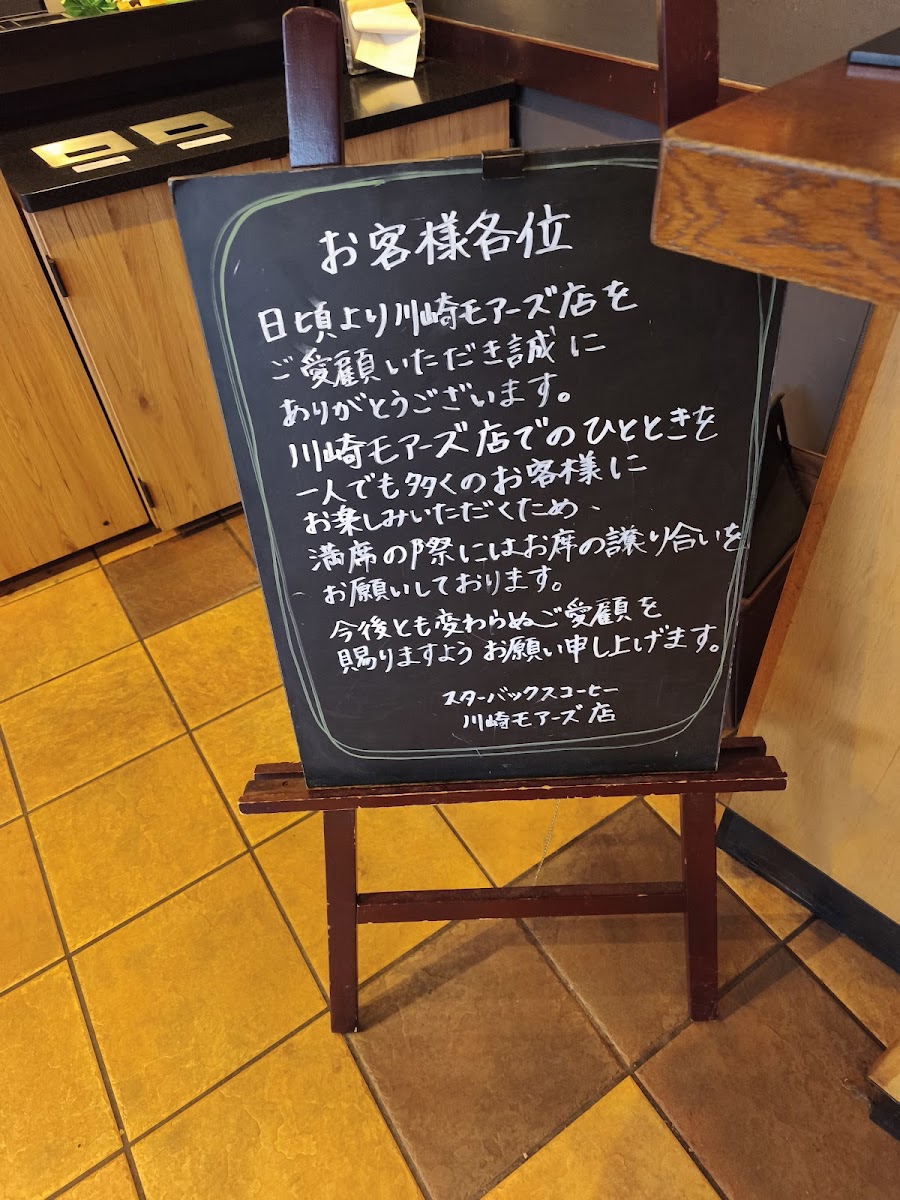 お客様各位
日頃より川崎モアーズ店を
ご愛顧いただき誠に
ありがとうございます。
川崎モアーズ店でのひとときを
一人でも多くのお客様に
お楽しみいただくため、
満席の際にはお席の譲り合いを
お願いしております。
今後とも変わらぬご愛顧を
賜りますようお願い申し上げます。
スターバックスコーヒー
川崎モアーズ店